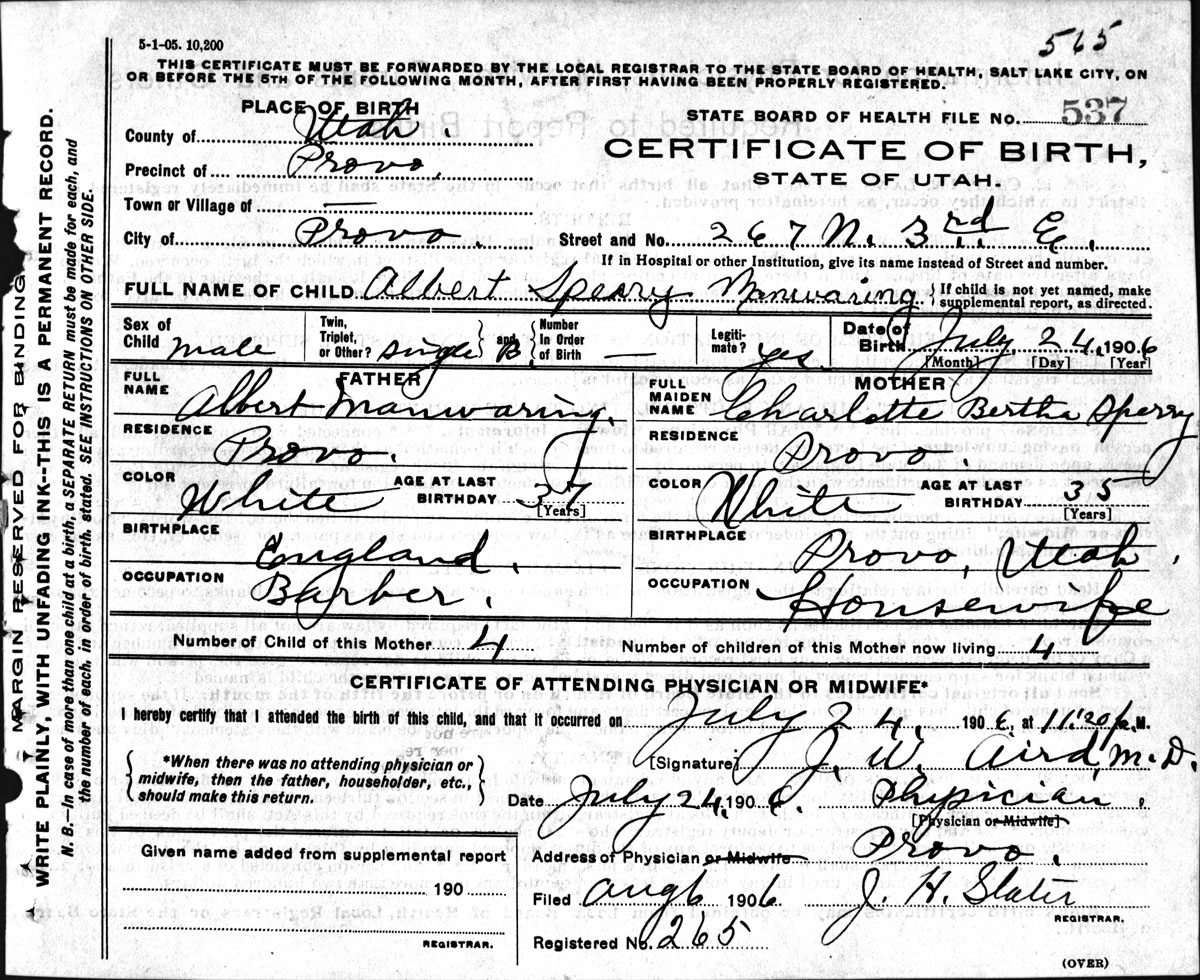 5-1-05. 10,200
565
THIS CERTIFICATE MUST BE FORWARDED BY THE LOCAL REGISTRAR TO THE STATE BOARD OF HEALTH, SALT LAKE CITY, ON
OR BEFORE THE 5TH OF THE FOLLOWING MONTH, AFTER FIRST HAVING BEEN PROPERLY REGISTERED.
PLACE OF BIRTH
STATE BOARD OF HEALTH FILE No. 537
County of Utah.
CERTIFICATE OF BIRTH,
Precinct of Provo.
STATE OF UTAH.
Town or Village of —
City of Provo. Street and No. 267 N. 3rd. E.
If in Hospital or other Institution, give its name instead of Street and number.
FULL NAME OF CHILD Albert Sperry Manwaring { If child is not yet named, make supplemental report, as directed.
Sex of Child male Twin, Triplet, or Other? single } and { Number In Order of Birth — Legiti-mate? yes. Date of Birth July 24, 1906
[Month] [Day] [Year]
FATHER
FULL NAME Albert Manwaring.
RESIDENCE Provo.
COLOR White AGE AT LAST BIRTHDAY 37
[Years]
BIRTHPLACE England.
OCCUPATION Barber.
MOTHER
FULL MAIDEN NAME Charlotte Bertha Sperry
RESIDENCE Provo.
COLOR White AGE AT LAST BIRTHDAY 35
[Years]
BIRTHPLACE Provo, Utah.
OCCUPATION Housewife
Number of Child of this Mother 4 Number of children of this Mother now living 4
CERTIFICATE OF ATTENDING PHYSICIAN OR MIDWIFE*
I hereby certify that I attended the birth of this child, and that it occurred on July 24, 1906, at 11:20 p. M.
{ *When there was no attending physician or
midwife, then the father, householder, etc.,
should make this return. }
[Signature] J. W. Aird, M.D.
Date July 24, 1906. Physician.
[Physician or Midwife]
Address of Physician or Midwife Provo.
Given name added from supplemental report
190
REGISTRAR.
Filed Aug 6 1906 J. H. Slater
REGISTRAR.
Registered No. 265
(OVER)
MARGIN RESERVED FOR BINDING.
WRITE PLAINLY, WITH UNFADING INK--THIS IS A PERMANENT RECORD.
N. B. In case of more than one child at a birth, a SEPARATE RETURN must be made for each, and
the number of each, in order of birth, stated. SEE INSTRUCTIONS ON OTHER SIDE.